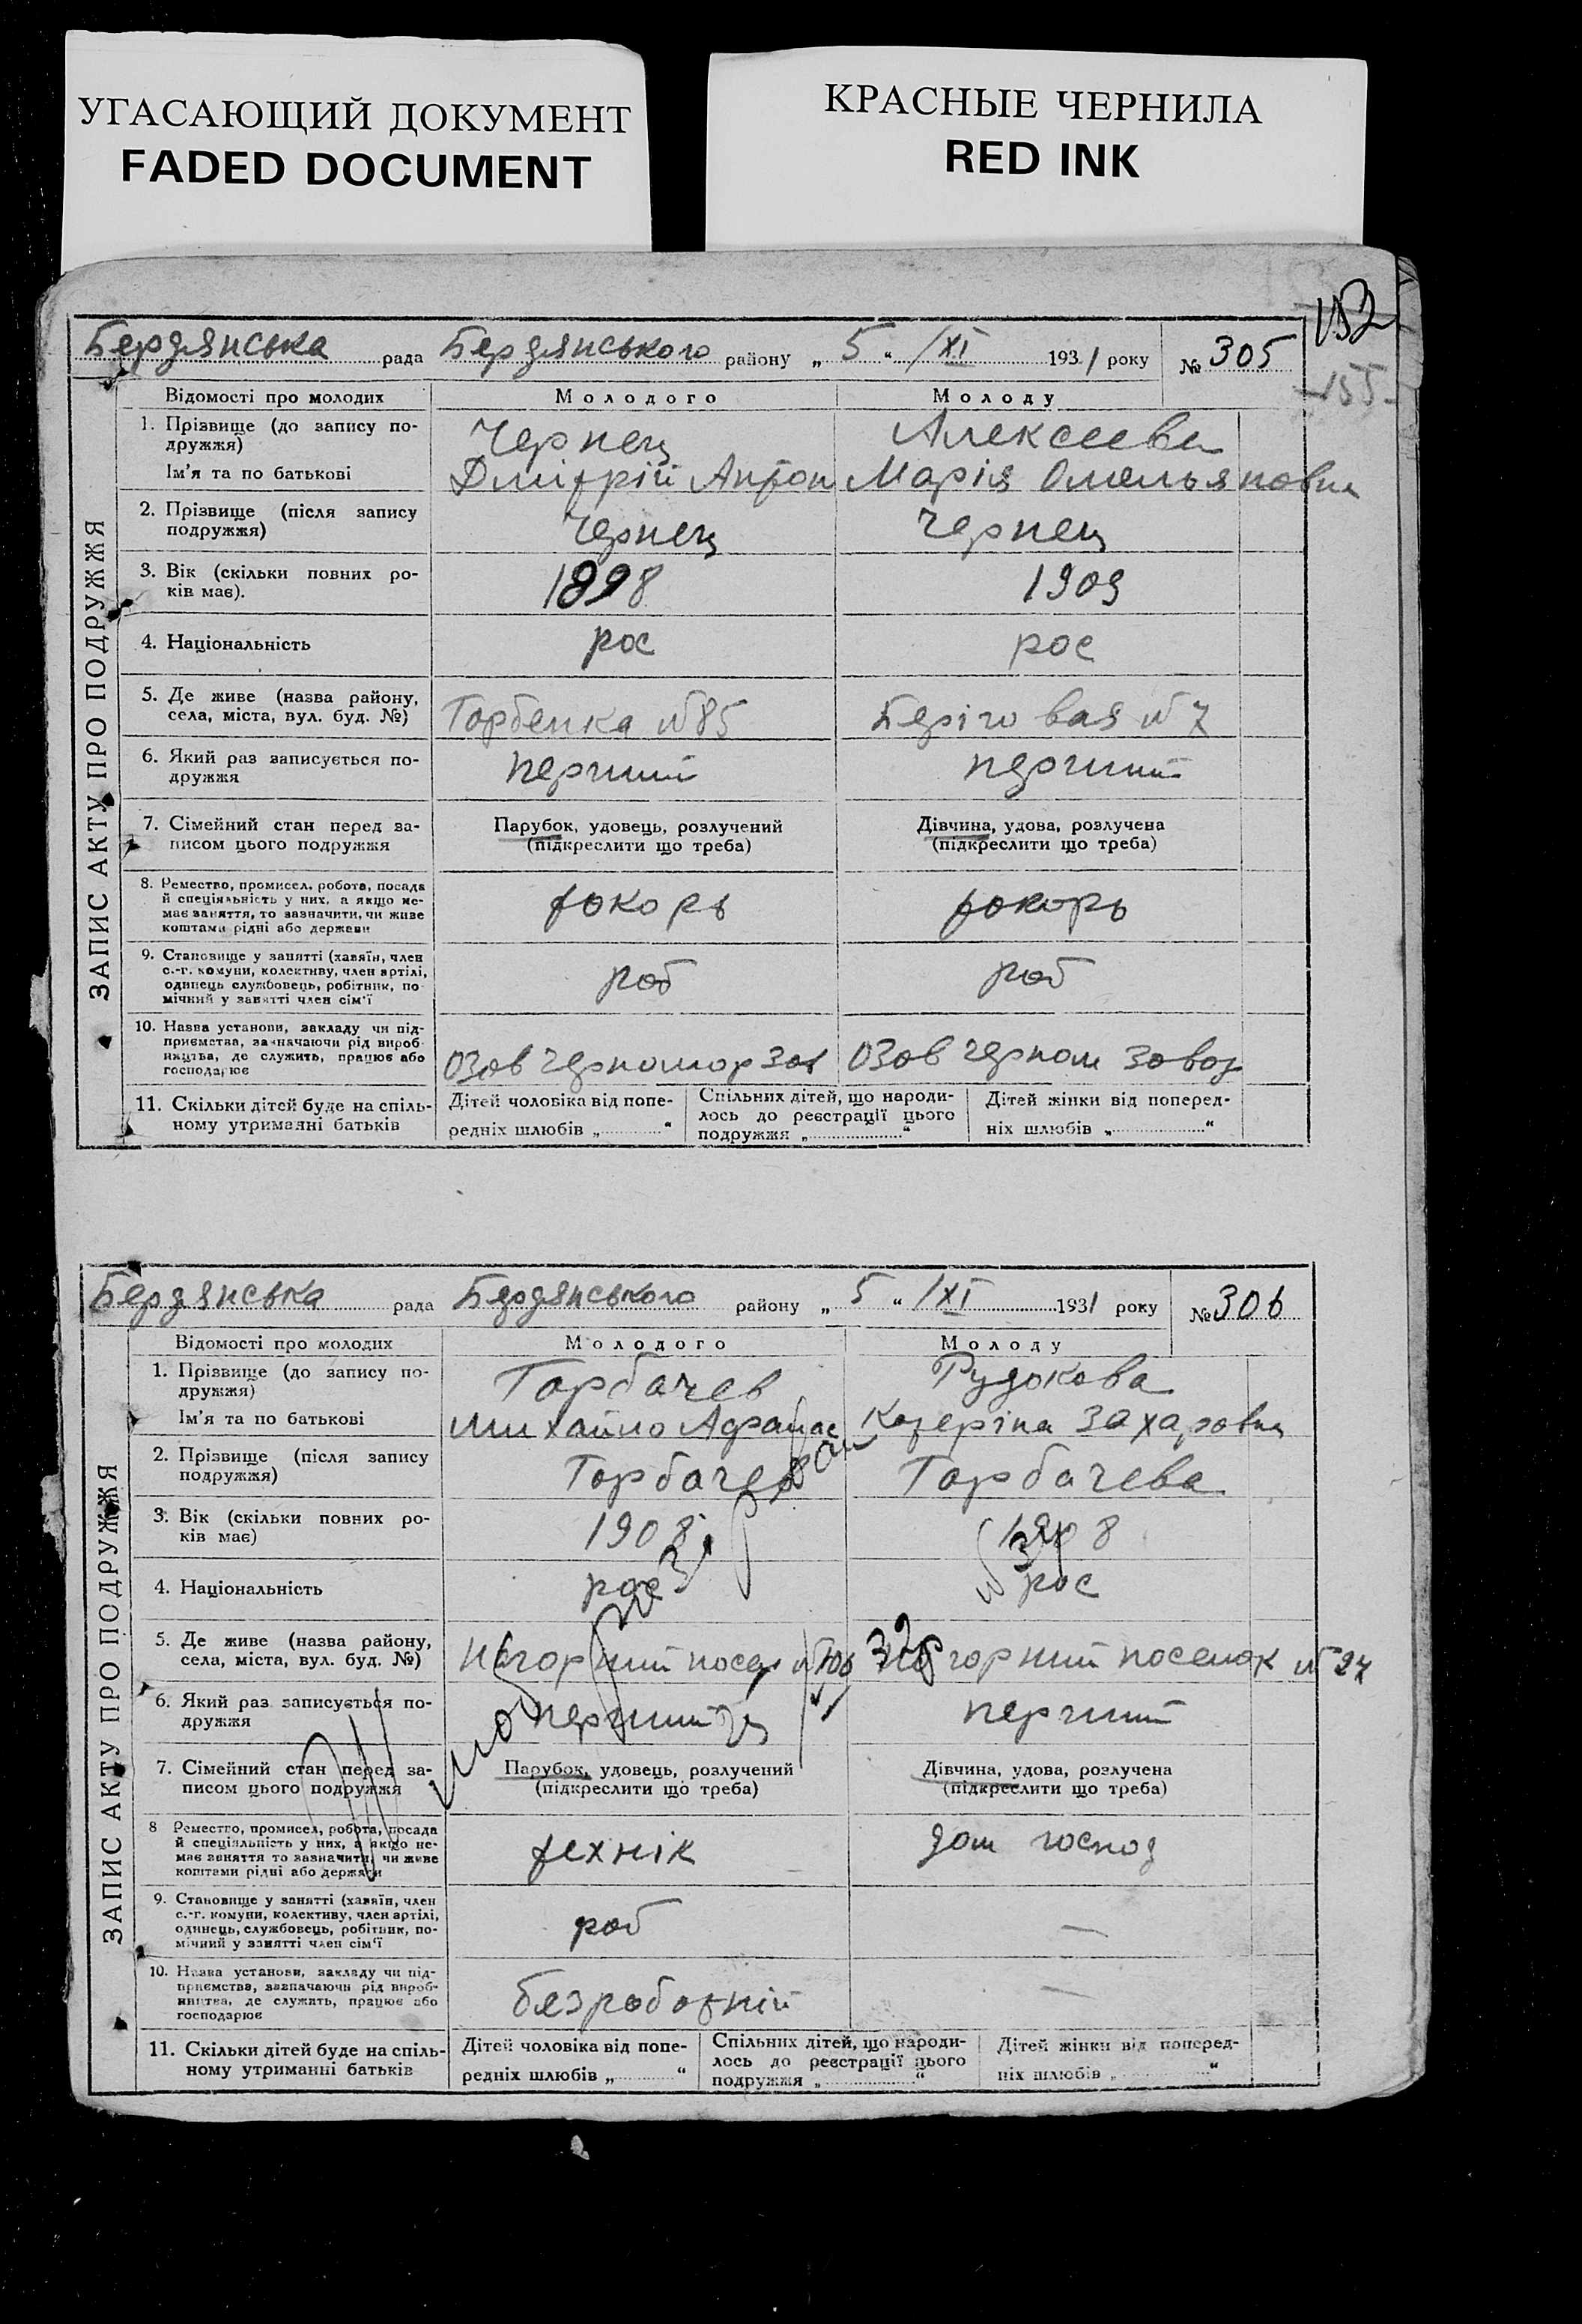 УГАСАЮЩИЙ ДОКУМЕНТ
FADED DOCUMENT
КРАСНЫЕ ЧЕРНИЛА
RED INK
152
155
Бердянська рада Бердянського району „ 5 “ /XI 1931 року № 305
ЗАПИС АКТУ ПРО ПОДРУЖЖЯ
Відомості про молодих Молодого Молоду
1. Прізвище (до запису по-
дружжя) Чернец Алексеева
Ім'я та по батькові Дмітрій Антон Марія Омельяновна
2. Прізвище (після запису
подружжя) Чернец Чернец
3. Вік (скільки повних ро-
ків має). 1898 1909
4. Національність рос рос
5. Де живе (назва району,
села, міста, вул. буд. №) Горбенка №85 Беріговая №7
6. Який раз записується по-
дружжя перший перший
7. Сімейний стан перед за-
писом цього подружжя
Парубок, удовець, розлучений
(підкреслити що треба)
Дівчина, удова, розлучена
(підкреслити що треба)
8. Ремество, промисел, робота, посада
й спеціяльність у них, а якщо не-
має заняття, то зазначити, чи живе
коштами рідні або держави
токорь токорь
9. Становище у занятті (хазяїн, член
с.-г. комуни, колективу, член артілі,
одинець службовець, робітник, по-
мічний у занятті член сім'ї
роб роб
10. Назва установи, закладу чи під-
приємства, зазначаючи рід вироб-
ництва, де служить, працює або
господарює
Озов черномор зав Озов черном завод
11. Скільки дітей буде на спіль-
ному утриманні батьків
Дітей чоловіка від попе-
редніх шлюбів „ “
Спільних дітей, що народи-
лось до реєстрації цього
подружжя „ “
Дітей жінки від поперед-
ніх шлюбів „ “
Бердянська рада Бердянського району „ 5 “ /XI 1931 року № 306
ЗАПИС АКТУ ПРО ПОДРУЖЖЯ
Відомості про молодих Молодого Молоду
1. Прізвище (до запису по-
дружжя) Горбачев Рудокова
Ім'я та по батькові Михайло Афанас Катеріна Захаровна
2. Прізвище (після запису
подружжя) Горбачев Горбачева
3. Вік (скільки повних ро-
ків має) 1908 1908
4. Національність рос рос
5. Де живе (назва району,
села, міста, вул. буд. №) Нагорний посел Нагорний поселок №27
6. Який раз записується по-
дружжя перший перший
7. Сімейний стан перед за-
писом цього подружжя
Парубок, удовець, розлучений
(підкреслити що треба)
Дівчина, удова, розлучена
(підкреслити що треба)
8 Ремество, промисел, робота, посада
й спеціяльність у них, а якщо не-
має заняття то зазначити, чи живе
коштами рідні або держави
технік дом господ
9. Становище у занятті (хазяїн, член
с.-г. комуни, колективу, член артілі,
одинець, службовець, робітник, по-
мічний у занятті член сім'ї
роб —
10. Назва установи, закладу чи під-
приємства, зазначаючи рід вироб-
ництва, де служить, працює або
господарює
безработній —
11. Скільки дітей буде на спіль-
ному утриманні батьків
Дітей чоловіка від попе-
редніх шлюбів „ “
Спільних дітей, що народи-
лось до реєстрації цього
подружжя „ “
Дітей жінки від поперед-
ніх шлюбів „ “